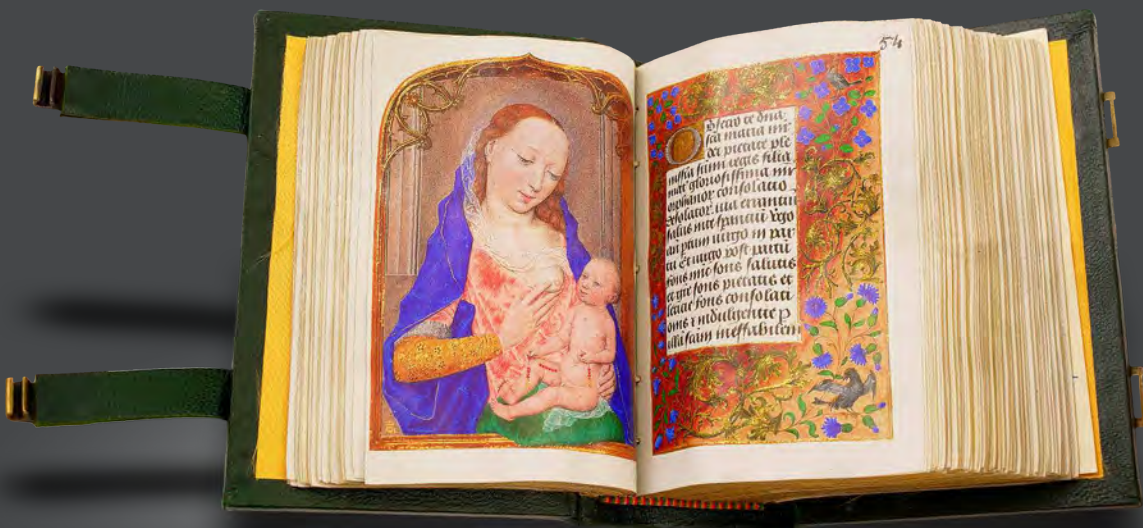 54
Obsecro te dna
sca maria mr
dei pietate ple
nissia sumi regis filia
mat gloriosissima mr
orphanor consolacio
desolator. via errantiu
salus in te sperantiu virgo
an ptum virgo in par
tu Et virgo post partu
fons mie fons salutis
et gre fons pietatis et
leticie fons consolati
onis & indulgentie p
illa scam ineffabilem